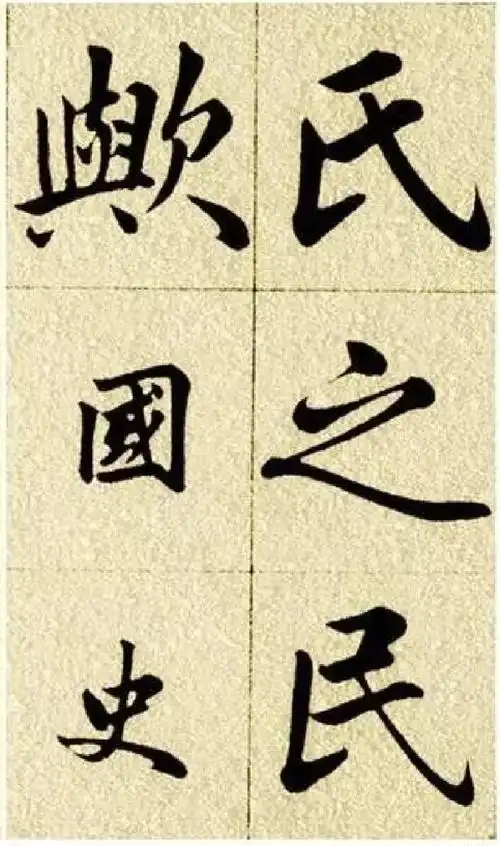 氏之民
歟國史